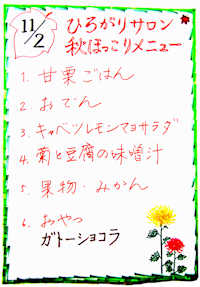 11/2
ひろがりサロン
秋ほっこりメニュー
1. 甘栗ごはん
2. おでん
3. キャベツレモンマヨサラダ
4. 菊と豆腐の味噌汁
5. 果物・みかん
6. おやつ
ガトーショコラ